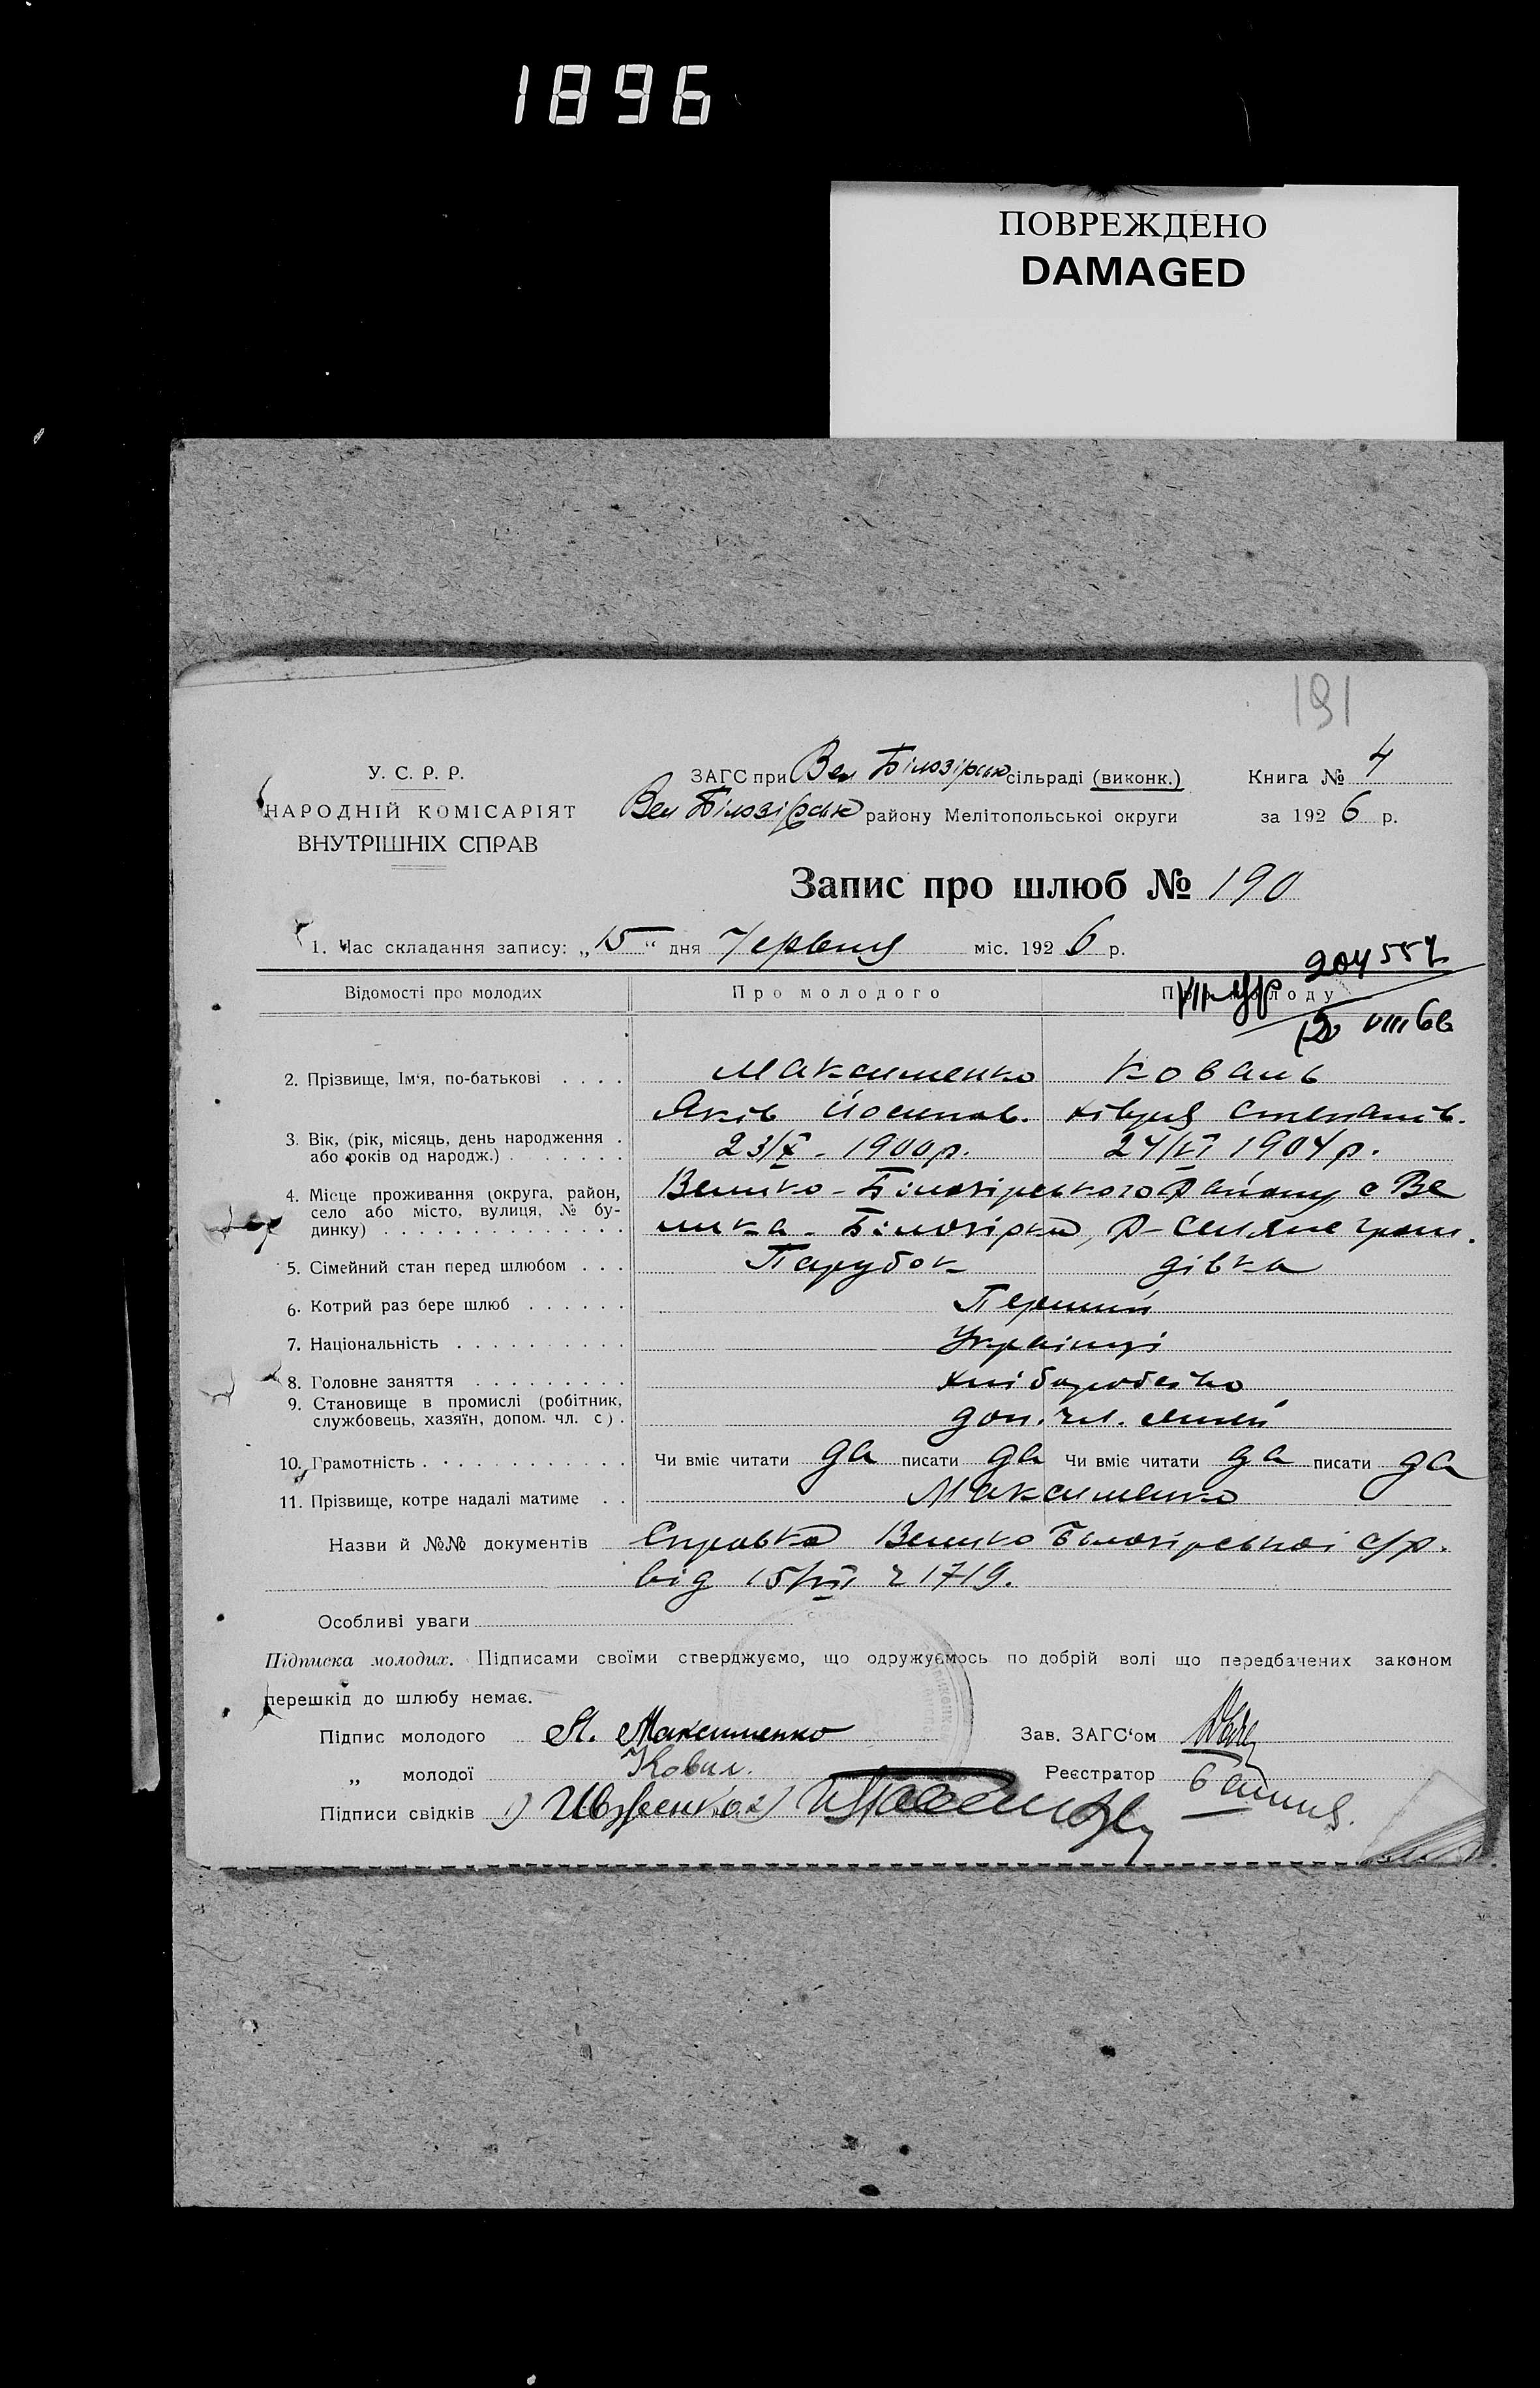 1896
ПОВРЕЖДЕНО
DAMAGED
191
У. С. Р. Р.
НАРОДНІЙ КОМІСАРІЯТ
ВНУТРІШНІХ СПРАВ
ЗАГС при Вел Білозірськ сільраді (виконк.)
Вел Білозірськ району Мелітопольської округи
Книга № 4
за 1926 р.
Запис про шлюб № 190
1. Час складання запису: „15“ дня Червня міс. 1926 р.
204557
Відомості про молодих Про молодого Про молоду
2. Прізвище, Ім‘я, по-батькові . . . . Максименко Коваль
Яків Йосипов. Степанів.
3. Вік, (рік, місяць, день народження . або років од народж.) . . . . . . . 23/X - 1900 р. 24/VI 1904 р.
4. Місце проживання (округа, район, село або місто, вулиця, № будинку) . . . . . . . . . . . . . . Велико-Білозірського Району с Ве
лика-Білозірка,
5. Сімейний стан перед шлюбом . . . Парубок дівка
6. Котрий раз бере шлюб . . . . . . Перший
7. Національність . . . . . . . . . . Українці
8. Головне заняття . . . . . . . . . хліборобство
9. Становище в промислі (робітник, службовець, хазяїн, допом. чл. с) . доп. чл. сім'ї
10. Грамотність . . . . . . . . . . . . Чи вміє читати да писати да Чи вміє читати да писати да
11. Прізвище, котре надалі матиме . . Максименко
Назви й №№ документів Справка Велико Білозірської с/р.
від 15/VI ч 1719.
Особливі уваги
Підписка молодих. Підписами своїми стверджуємо, що одружуємось по добрій волі що передбачених законом
перешкід до шлюбу немає.
Підпис молодого Я. Максименко Зав. ЗАГС‘ом
„ молодої Ковал. Реєстратор
Підписи свідків 1) 2)